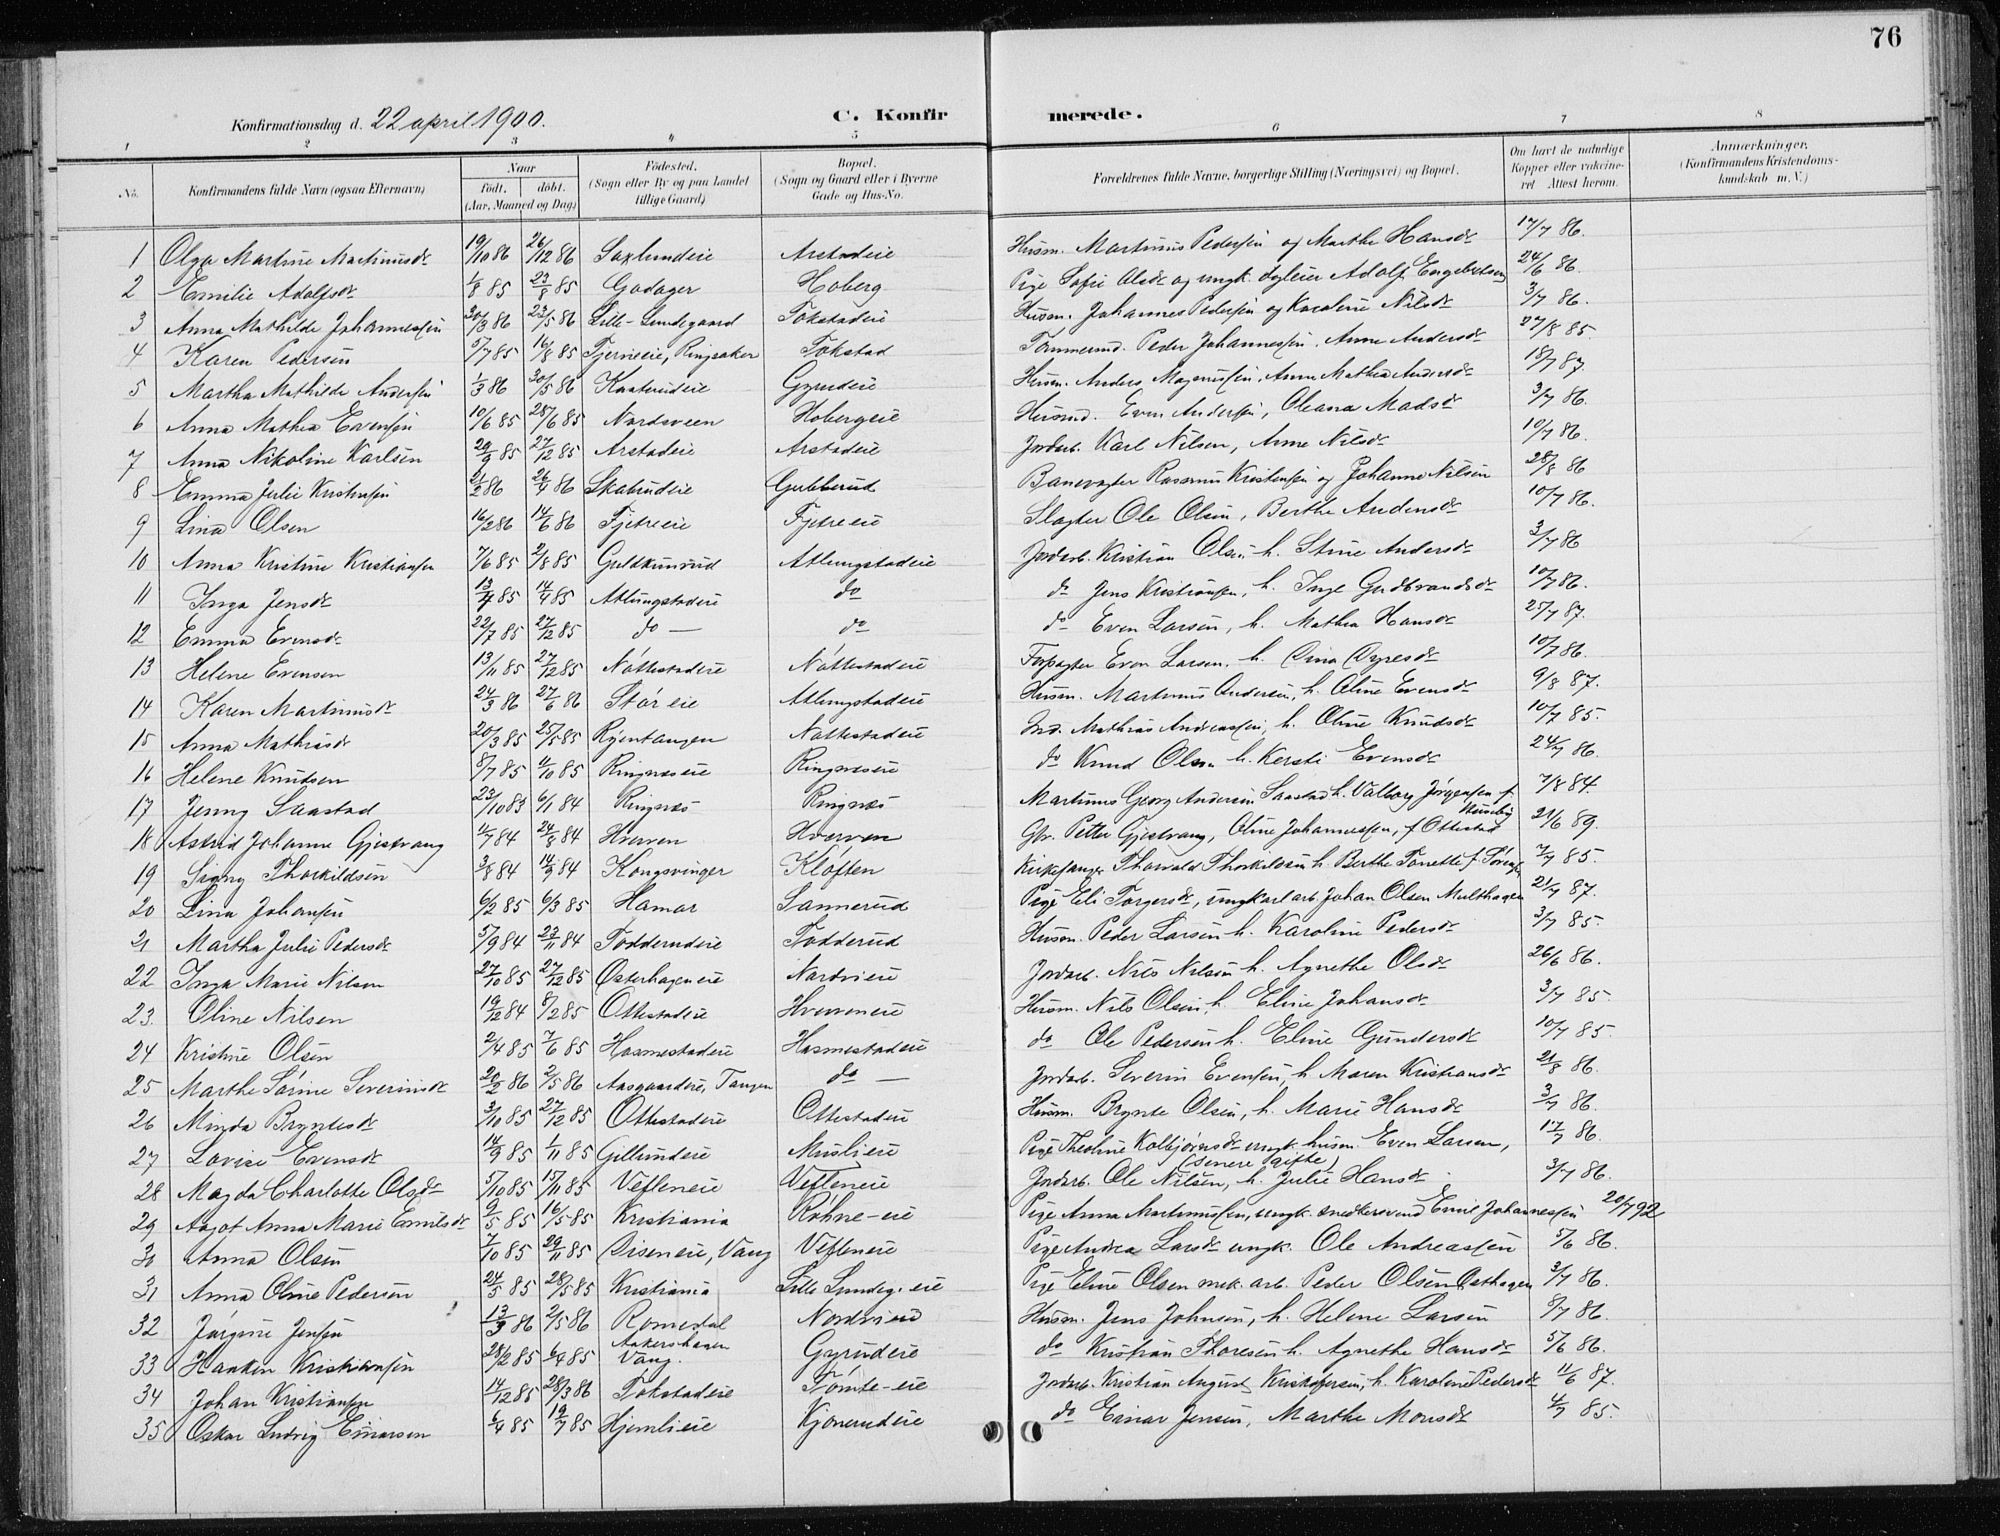 76
Konfirmationsdag d. 22 april 1900. C. Konfirmerede.
1 2 3 4 5 6 7 8
No. Konfirmandens fulde Navn (ogsaa Efternavn) Naar født. døbt. (Aar, Maaned og Dag) Fødested. (Sogn eller By og paa Landet tillige Gaard) Bopæl. (Sogn og Gaard eller i Byerne Gade og Hus-No. Forældrenes fulde Navne, borgerlige Stilling (Næringsvei) og Bopæl. Om havt de naturlige Kopper eller vakcineret. Attest herom. Anmærkninger. (Konfirmandens Kristendomskundskab m. V.)
1 Olga Martine Martinusdr 19/10 86 26/12 86 Saxlundeie Arstadeie Husm. Martinus Pedersen og Marthe Hansdr 17/7 86.
2 Emilie Adolfsdr 1/8 85 23/8 85 Godager Hoberg Pige Sofie Olsdr og ungk. Adolf Engebretsen 24/6 86.
3 Anna Mathilde Johannessen 30/3 86 23/5 86 Lille-Lundegaard Tokstadeie Husm. Johannes Pedersen og Karoline Nilsdr 3/7 86.
4 Karen Pedersen 5/7 85 16/8 85 Tjerneeie, Ringsaker Tokstad Tømmermd. Peder Johannessen, Anne Andersdr 27/8 85.
5 Martha Mathilde Andersen 1/3 86 30/5 86 Kaaterudeie Gyrudeie Husm. Anders Magnussen, Anne Mathea Andersdr 18/7 87.
6 Anna Mathea Evensen 10/6 85 28/6 85 Nordsveen Hobergeie Husmd. Even Andersen, Oleana Madsdr 3/7 86.
7 Anna Nikoline Karlsen 29/9 85 27/12 85 Arstadeie Arstadeie Jordarb. Karl Nilsen, Anne Nilsdr 10/7 86.
8 Emma Julie Kristensen 21/2 86 26/4 86 Skabrudeie Gubberud Banevogter Rasmus Kristensen og Johanne Nilsen 28/8 86
9 Lina Olsen 16/2 86 14/6 86 Fjetreeie Fjetreeie Slagter Ole Olsen, Berthe Andersdr 10/7 86.
10 Anna Kristine Kristiansen 7/6 85 2/8 85 Guldkunrud Atlungstadeie Jordarb. Kristian Olsen h. Stine Andersdr 3/7 86
11 Inga Jensdr 13/4 85 14/4 85 Atlungstadeie do do Jens Kristiansen, h. Inge Gudbrandsdr 10/7 86.
12 Emma Evensdr 22/7 85 27/12 85 do — do do Even Larsen, h. Mathea Hansdr 25/7 87.
13 Helene Evensen 13/11 85 27/12 85 Nøttestadeie Nøttestadeie Forpagter Even Larsen, h. Dina Dyresdr 10/7 86.
14 Karen Martinusdr 24/3 86 27/6 86 Støreie Atlungstadeie Husm. Martinus Andersen, h. Oline Evensdr 9/8 87.
15 Anna Mathiasdr 20/3 85 25/5 85 Ryentangen Nøttestadeie Jrd. Mathias Andreassen, h. Oline Knudsdr 10/7 85.
16 Helene Knudsen 8/7 85 4/10 85 Ringnæseie Ringnæseie do Knud Olsen h. Kersti Evensdr 24/7 86.
17 Jenny Saastad 23/10 83 6/1 84 Ringnæs Ringnæs Martinus Georg Andersen Saastad h. Valborg Jørgensen f. Huseby 7/8 84
18 Astrid Johanne Gjestvang 4/7 84 24/8 84 Hverven Hverven Gbr. Petter Gjestvang, Oline Johannessen, f. Ottestad 21/6 89.
19 Signy Thorkildsen 3/8 84 14/9 84 Kongsvinger Kløften Kirkesanger Thorvald Thorkildsen h. Berthe Tonette f. 7/7 85.
20 Lina Johansen 6/2 85 6/3 85 Hamar Sannerud Pige Eli Torgersdr, ungkarl arb. Johan Olsen Multhagen 21/7 87.
21 Martha Julie Pedersdr 5/9 84 23/11 84 Fodderudeie Fodderud Husm. Peder Larsen h. Karoline Pedersdr 3/7 85.
22 Inga Marie Nilsen 27/10 85 27/12 85 Østerhageneie Nordvieie Jordarb. Nils Nilsen h. Agnethe Olsdr 26/6 86.
23. Oline Nilsen 19/12 84 8/2 85 Ottestadeie Hverveneie Husm. Nils Olsen, h. Eline Johansdr 3/7 85.
24 Kristine Olsen 2/4 85 7/6 85 Hosmestadeie Hosmestadeie do Ole Pedersen h. Eline Gundersdr 10/7 85
25 Marthe Sørine Severinsdr 20/2 86 2/5 86 Aasgaardeie, Tangen do — Jordarb. Severin Evensen, h. Maren Kristiansdr 21/8 86.
26 Minda Bryntesdr 3/10 85 27/12 85 Ottestadeie Ottestadeie Husm. Brynte Olsen, h. Marie Hansdr 3/7 86.
27 Lovise Evensdr 14/9 85 1/11 85 Gillundeie Muslieie Pige Theoline Kolbjørnsdr ungk. husm. Even Larsen, (senere gifte) 17/7 86.
28 Magda Charlotte Olsdr 5/10 85 15/11 85 Vefleneie Vefleneie Jordarb. Ole Nilsen, h. Julie Hansdr 3/7 86.
29 Aagot Anna Marie Emilsdr 9/5 85 16/5 85 Kristiania Røhne-eie Pige Anna Martinussen, ungk. snedkersvend Emil Johannessen 20/7 92
30 Anna Olsen 7/10 85 29/11 85 Diseneie, Vang Vefleneie Pige Andrea Larsdr ungk. Ole Andreassen 5/6 86.
31 Anna Oline Pedersen 24/5 85 28/5 85 Kristiania Lille Lundeg. eie Pige Eline Olsen ungk. arb. Peder Olsen Østhagen 3/7 86.
32 Jørgine Jensen 13/3 86 2/5 86 Romedal Nordvieie Husm. Jens Johnsen, h. Helene Larsen 8/7 86.
33 Haaken Kristiansen 28/2 85 6/4 85 Aakershagen Vang. Gyrudeie do Kristian Thoresen h. Agnethe Hansdr 5/6 86.
34 Johan Kristiansen 14/12 85 28/3 86 Tokstadeie Tømte-eie Jordarb. Kristian August Kristofersen, h. Karoline Pedersdr 11/6 87.
35 Oskar Ludvig Einarsen 6/4 85 19/7 85 Hjemlieie Kjonerudeie do Einar Jensen, Marthe Monsdr 4/7 85.